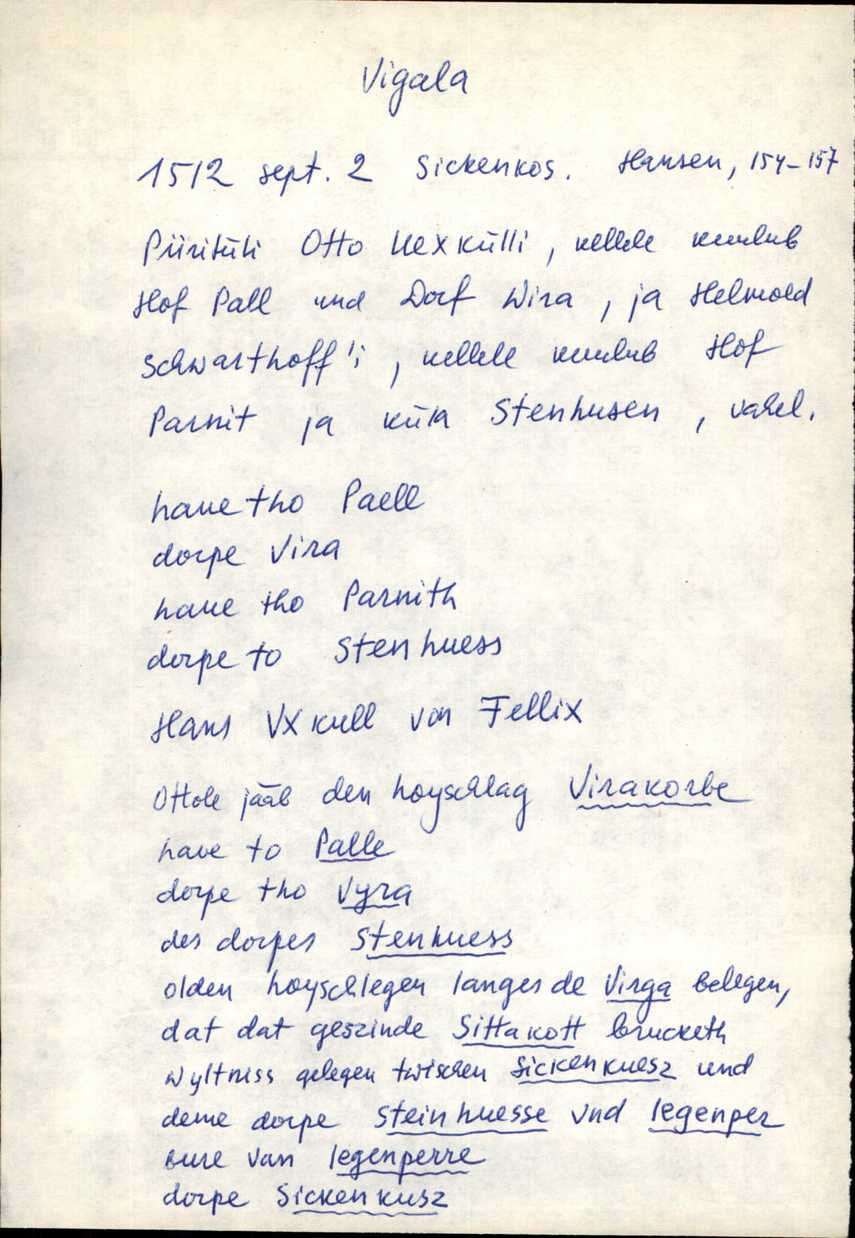 Vigala
1512 sept. 2 Sickenkos. Hansen, 154-157
Piiritüli Otto Uexkülli, kellele kuulub
Hof Pall und Dorf Wira, ja Helmold
Schwarthoff'i, kellele kuulub Hof
Parnit ja küla Stenhusen, vahel.
haue tho Paell
dorpe Vira
haue tho Parnith
dorpe to Stenhuess
Hans Vxkull von Fellix
Ottole jääb den hoyschlag Virakorbe
have to Palle
dorpe tho Vyra
des dorpes Stenhuess
olden hoyschlegen langes de Virga belegen,
dat dat geszinde Sittakott brucketh
wyltniss gelegen twischen Sickenkuesz und
deme dorpe Steinhuesse vnd legenper
bure van legenperre
dorpe Sickenkusz